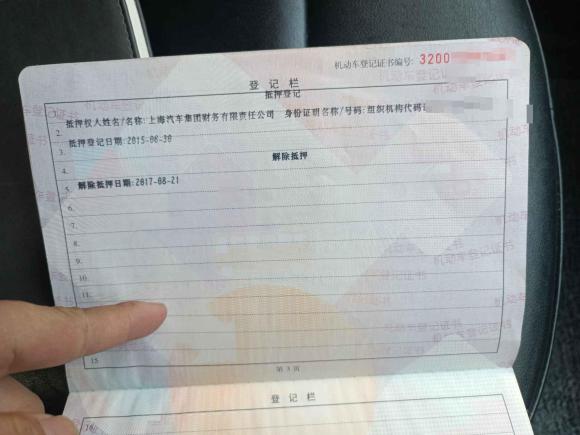 机动车登记证书编号: 3200
登记栏
抵押登记
抵押权人姓名/名称:上海汽车集团财务有限责任公司 身份证明名称/号码:组织机构代码
2.
抵押登记日期:2015-06-30
3.
解除抵押
4.
5.
解除抵押日期:2017-08-21
6.
7.
8.
9.
10.
11.
15
第 3 页
登记栏
16.